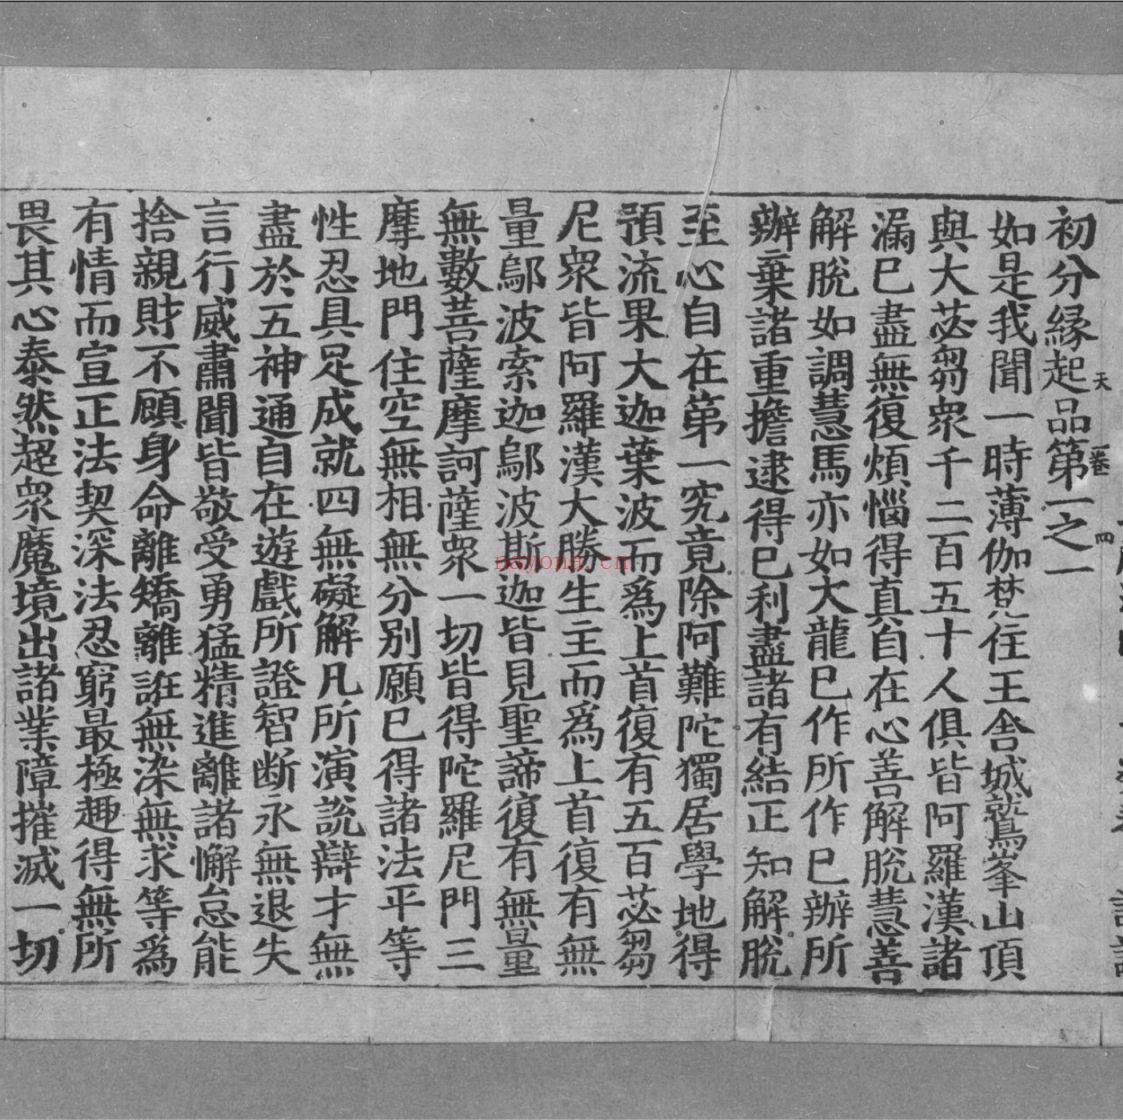 天 一卷 四
初分緣起品第一之一
如是我聞一時薄伽梵住王舍城鷲峯山頂
與大苾芻衆千二百五十人俱皆阿羅漢諸
漏已盡無復煩惱得真自在心善解脫慧善
解脫如調慧馬亦如大龍已作所作已辦所
辦棄諸重擔逮得已利盡諸有結正知解脫
至心自在第一究竟除阿難陀獨居學地得
預流果大迦葉波而爲上首復有五百苾芻
尼衆皆阿羅漢大勝生主而爲上首復有無
量鄔波索迦鄔波斯迦皆見聖諦復有無量
無數菩薩摩訶薩衆一切皆得陀羅尼門三
摩地門住空無相無分别願已得諸法平等
性忍具足成就四無礙解凡所演説辯才無
盡於五神通自在遊戲所證智断永無退失
言行威肅聞皆敬受勇猛精進離諸懈怠能
捨親財不顧身命離矯離誑無染無求等爲
有情而宣正法契深法忍窮最極趣得無所
畏其心泰然超衆魔境出諸業障摧滅一切
nayona.cn